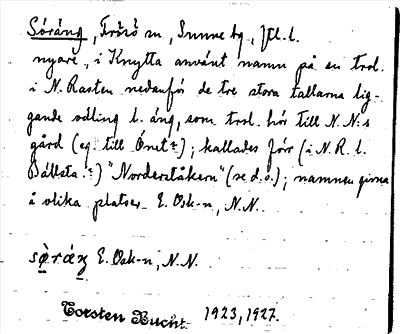 Söräng, Frösö sn, Sunne tg, Jtl. l.
nyare, i Knytta använt namn på en trol.
i N. Rasten nedanför de tre stora tallarna lig-
gande odling l. äng, som trol. hör till N.N:s
gård (eg. till Önet?); kallades förr (i N.R. l.
Bälleta?) "Norderståkern" (se d.o.); namnen givna
å olika platser E. Osk-n, N.N.
E. Osk-n, N.N.
Torsten Bucht. 1923, 1927.